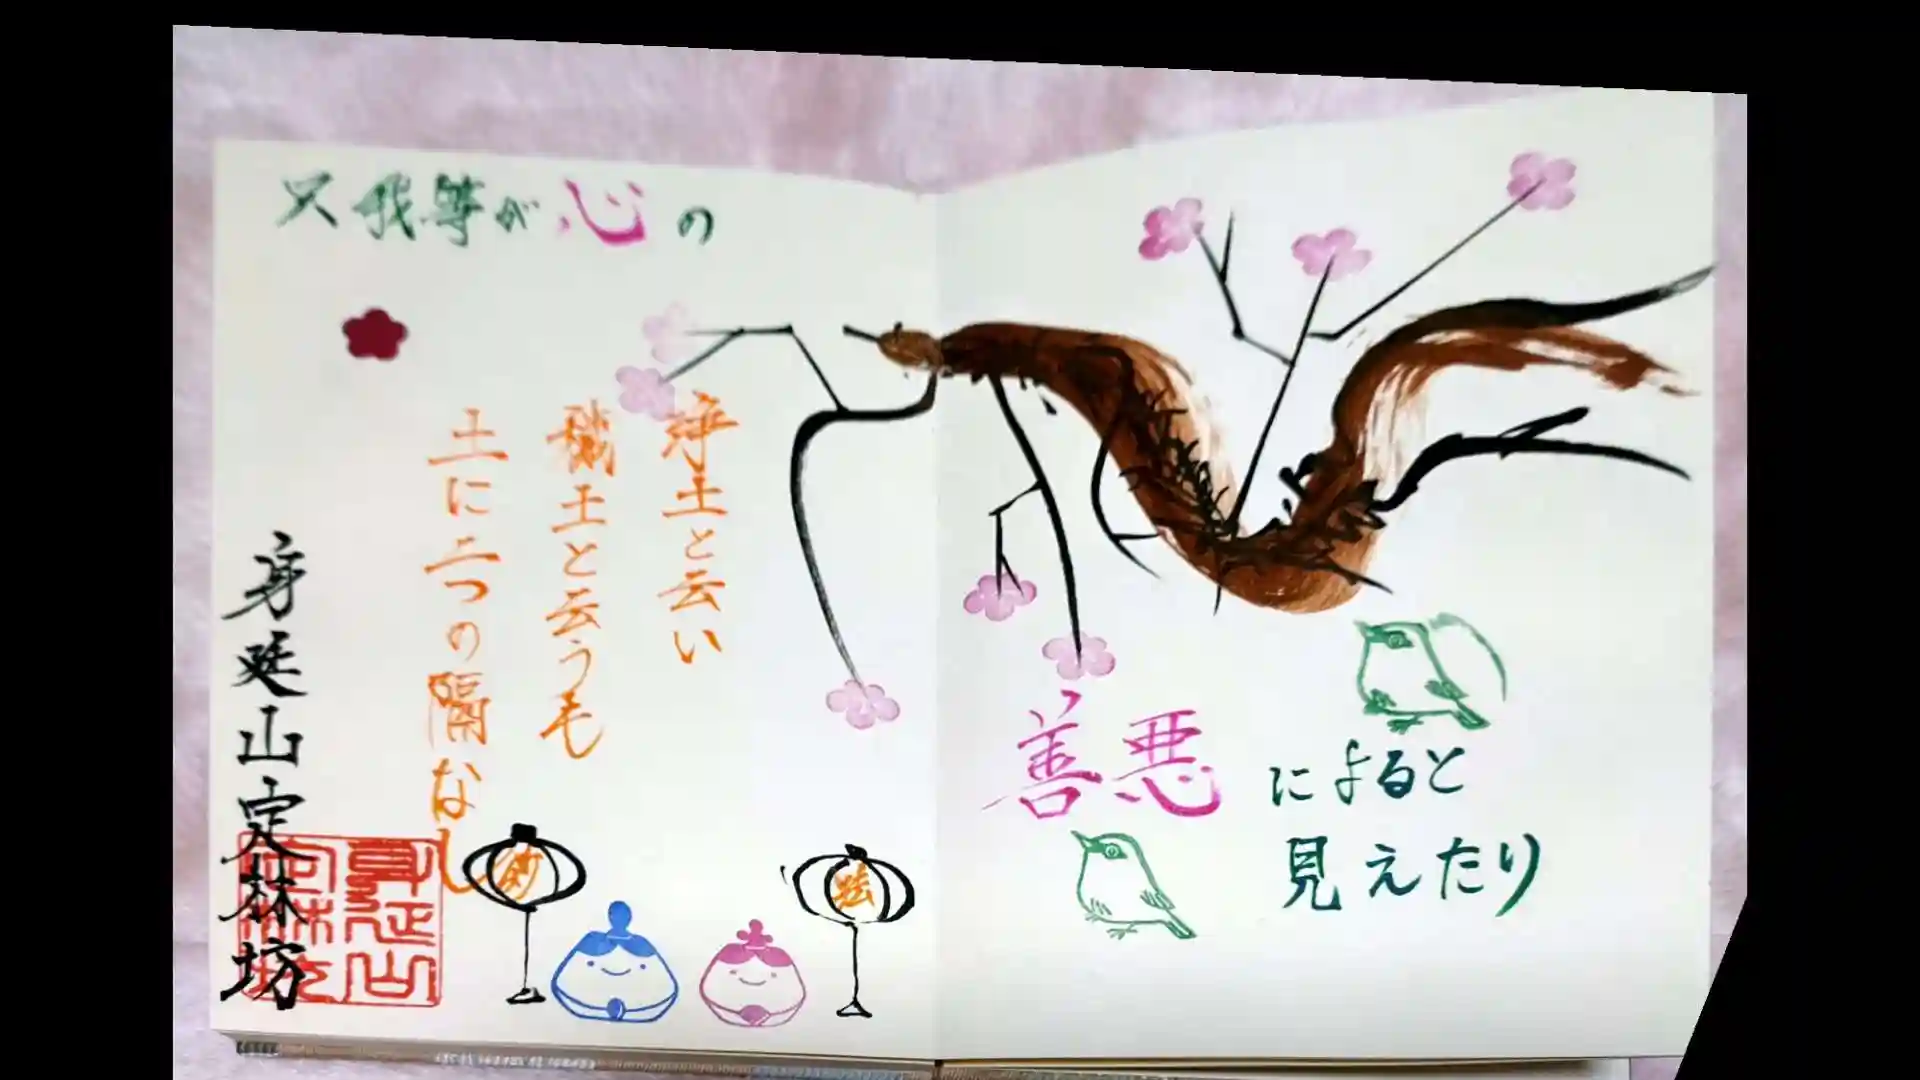 浄土と云い
穢土と云うも
土に二つの隔なし
只我等が心の
善悪
によると
見えたり
身延山定林坊
身延山
定林坊